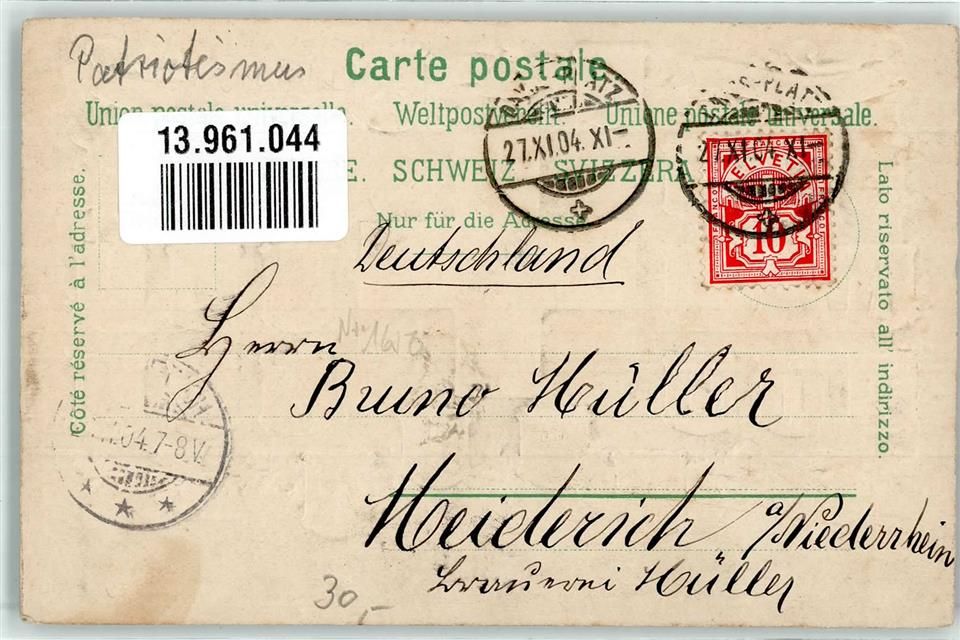 Patriotismus
Carte postale
Union postale universelle. Weltpostverein. Unione postale universale.
13.961.044
E. SCHWEIZ. SVIZZERA
Nur für die Adresse
Deutschland
Côté réservé à l'adresse.
Lato riservato all' indirizzo.
PLATZ
27.XI.04. XI-
PLATZ
27.XI.04. XI-
HELVETIA
10
Herrn
Bruno Hüller
Meiderich a/Niederrhein
Brauerei Hüller
04.7-8.V.
30,-